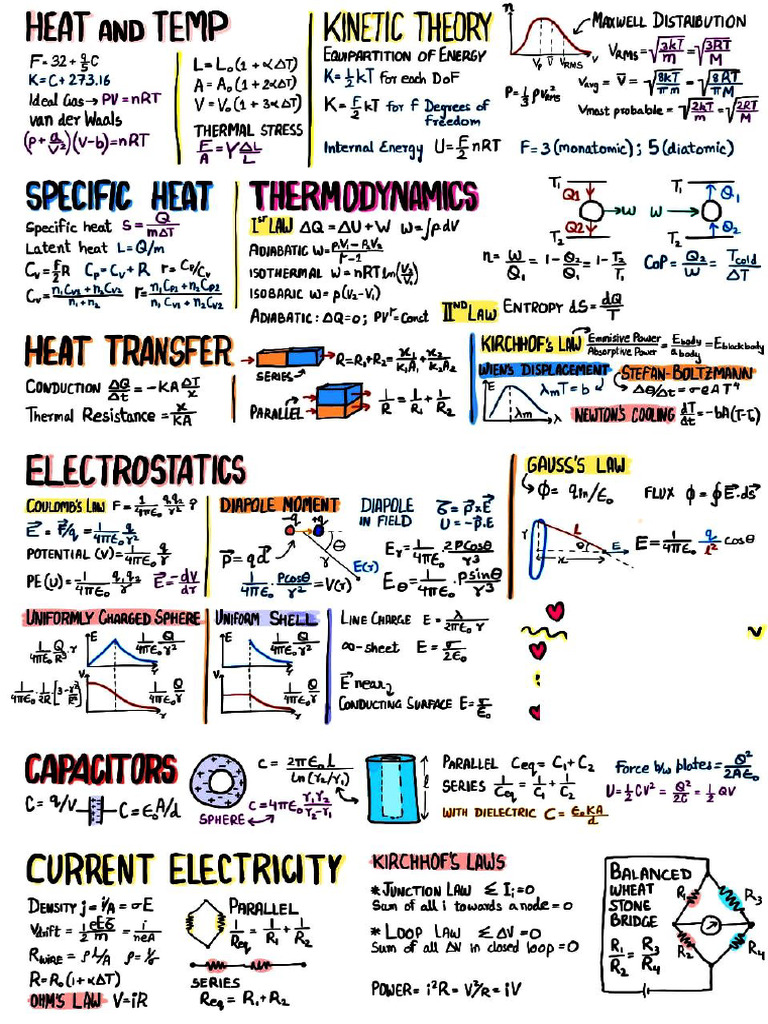 HEAT AND TEMP
F = 32 + 9/5 C
K = C + 273.16
Ideal Gas → PV = nRT
van der Waals
(p + a/V²)(V - b) = nRT
L = L₀(1 + αΔT)
A = A₀(1 + 2αΔT)
V = V₀(1 + 3αΔT)
THERMAL STRESS
F/A = Y ΔL/L
KINETIC THEORY
EQUIPARTITION OF ENERGY
K = 1/2 kT for each DoF
K = F/2 kT for f Degrees of
freedom
Internal Energy U = F/2 nRT
F = 3 (monatomic) ; 5 (diatomic)
n
Vp V̅ VRMS V
P = 1/3 ρV²RMS
MAXWELL DISTRIBUTION
VRMS = √(3kT/m) = √(3RT/M)
Vavg = V̅ = √(8kT/πm) = √(8RT/πM)
Vmost probable = √(2kT/m) = √(2RT/M)
SPECIFIC HEAT
Specific heat S = Q/mΔT
Latent heat L = Q/m
Cv = F/2 R Cp = Cv + R r = Cp/Cv
Cv = (n₁Cv₁ + n₂Cv₂)/(n₁ + n₂) r = (n₁Cp₁ + n₂Cp₂)/(n₁Cv₁ + n₂Cv₂)
THERMODYNAMICS
Iˢᵗ LAW ΔQ = ΔU + W W = ∫pdV
ADIABATIC W = (P₁V₁ - P₂V₂)/(r - 1)
ISOTHERMAL W = nRT ln(V₂/V₁)
ISOBARIC W = p(V₂ - V₁)
ADIABATIC : ΔQ = 0 ; PVʳ = Const
IIᴺᴰ LAW ENTROPY dS = dQ/T
T₁ Q1 → W Q2 T₂
T₁ Q₁ W → Q₂ T₂
n = W/Q₁ = 1 - Q₂/Q₁ = 1 - T₂/T₁
CoP = Q₂/W = Tcold/ΔT
HEAT TRANSFER
CONDUCTION ΔQ/Δt = -KA ΔT/x
Thermal Resistance = x/KA
SERIES R = R₁ + R₂ = x₁/K₁A₁ + x₂/K₂A₂
PARALLEL 1/R = 1/R₁ + 1/R₂
KIRCHHOF'S LAW Emmisive Power/Absorptive Power = Ebody/abody = Eblackbody
WIEN'S DISPLACEMENT
λmT = b
λm λ
STEFAN-BOLTZMANN
ΔΘ/Δt = σeAT⁴
NEWTON'S COOLING dT/dt = -bA(T-T₀)
ELECTROSTATICS
COULOMB'S LAW F = 1/4πϵ₀ q₁q₂/r² r̂
E⃗ = F⃗/q = 1/4πϵ₀ q/r²
POTENTIAL (V) = 1/4πϵ₀ q/r
PE (U) = 1/4πϵ₀ q₁q₂/r E⃗ = -dV/dr
DIAPOLE MOMENT
-q +q
θ
r
E(r)
p⃗ = qd⃗
1/4πϵ₀ · pcosθ/r² = V(r)
DIAPOLE
IN FIELD
τ⃗ = p⃗ x E⃗
U = -p⃗.E⃗
Er = 1/4πϵ₀ 2pcosθ/r³
Eθ = 1/4πϵ₀ · psinθ/r³
GAUSS'S LAW
ϕ = qin/ϵ₀ FLUX ϕ = ∮E⃗.ds⃗
r L θ E x
E = 1/4πϵ₀ q/L² cosθ
UNIFORMLY CHARGED SPHERE
1/4πϵ₀ Q/R³ · r E 1/4πϵ₀ Q/r² r
1/4πϵ₀ · Q/2R [3 - r²/R²] V 1/4πϵ₀ Q/r r
UNIFORM SHELL
E 1/4πϵ₀ Q/r² r
V 1/4πϵ₀ Q/r r
LINE CHARGE E = λ/2πϵ₀r
∞-sheet E = σ/2ϵ₀
E⃗ near
CONDUCTING SURFACE E = σ/ϵ₀
CAPACITORS
C = q/V C = ϵ₀A/d
C = 2πϵ₀l/ln(r₂/r₁)
SPHERE C = 4πϵ₀ r₁r₂/(r₂-r₁)
l
PARALLEL Ceq = C₁ + C₂
SERIES 1/Ceq = 1/C₁ + 1/C₂
WITH DIELECTRIC C = ϵ₀KA/d
Force b/w plates = Q²/2Aϵ₀
U = 1/2 CV² = Q²/2C = 1/2 QV
CURRENT ELECTRICITY
DENSITY j = i/A = σE
Vdrift = 1/2 eEτ/m = i/neA
RWIRE = ρ L/A ρ = 1/σ
R = R₀(1 + αΔT)
OHM'S LAW V = iR
PARALLEL
1/Req = 1/R₁ + 1/R₂
SERIES
Req = R₁ + R₂
KIRCHHOF'S LAWS
* JUNCTION LAW Σ Ii = 0
Sum of all i towards a node = 0
* LOOP LAW Σ ΔV = 0
Sum of all ΔV in closed loop = 0
POWER = i²R = V²/R = iV
BALANCED
WHEAT
STONE
BRIDGE
R₁/R₂ = R₃/R₄
R₁ R₃
R₂ R₄